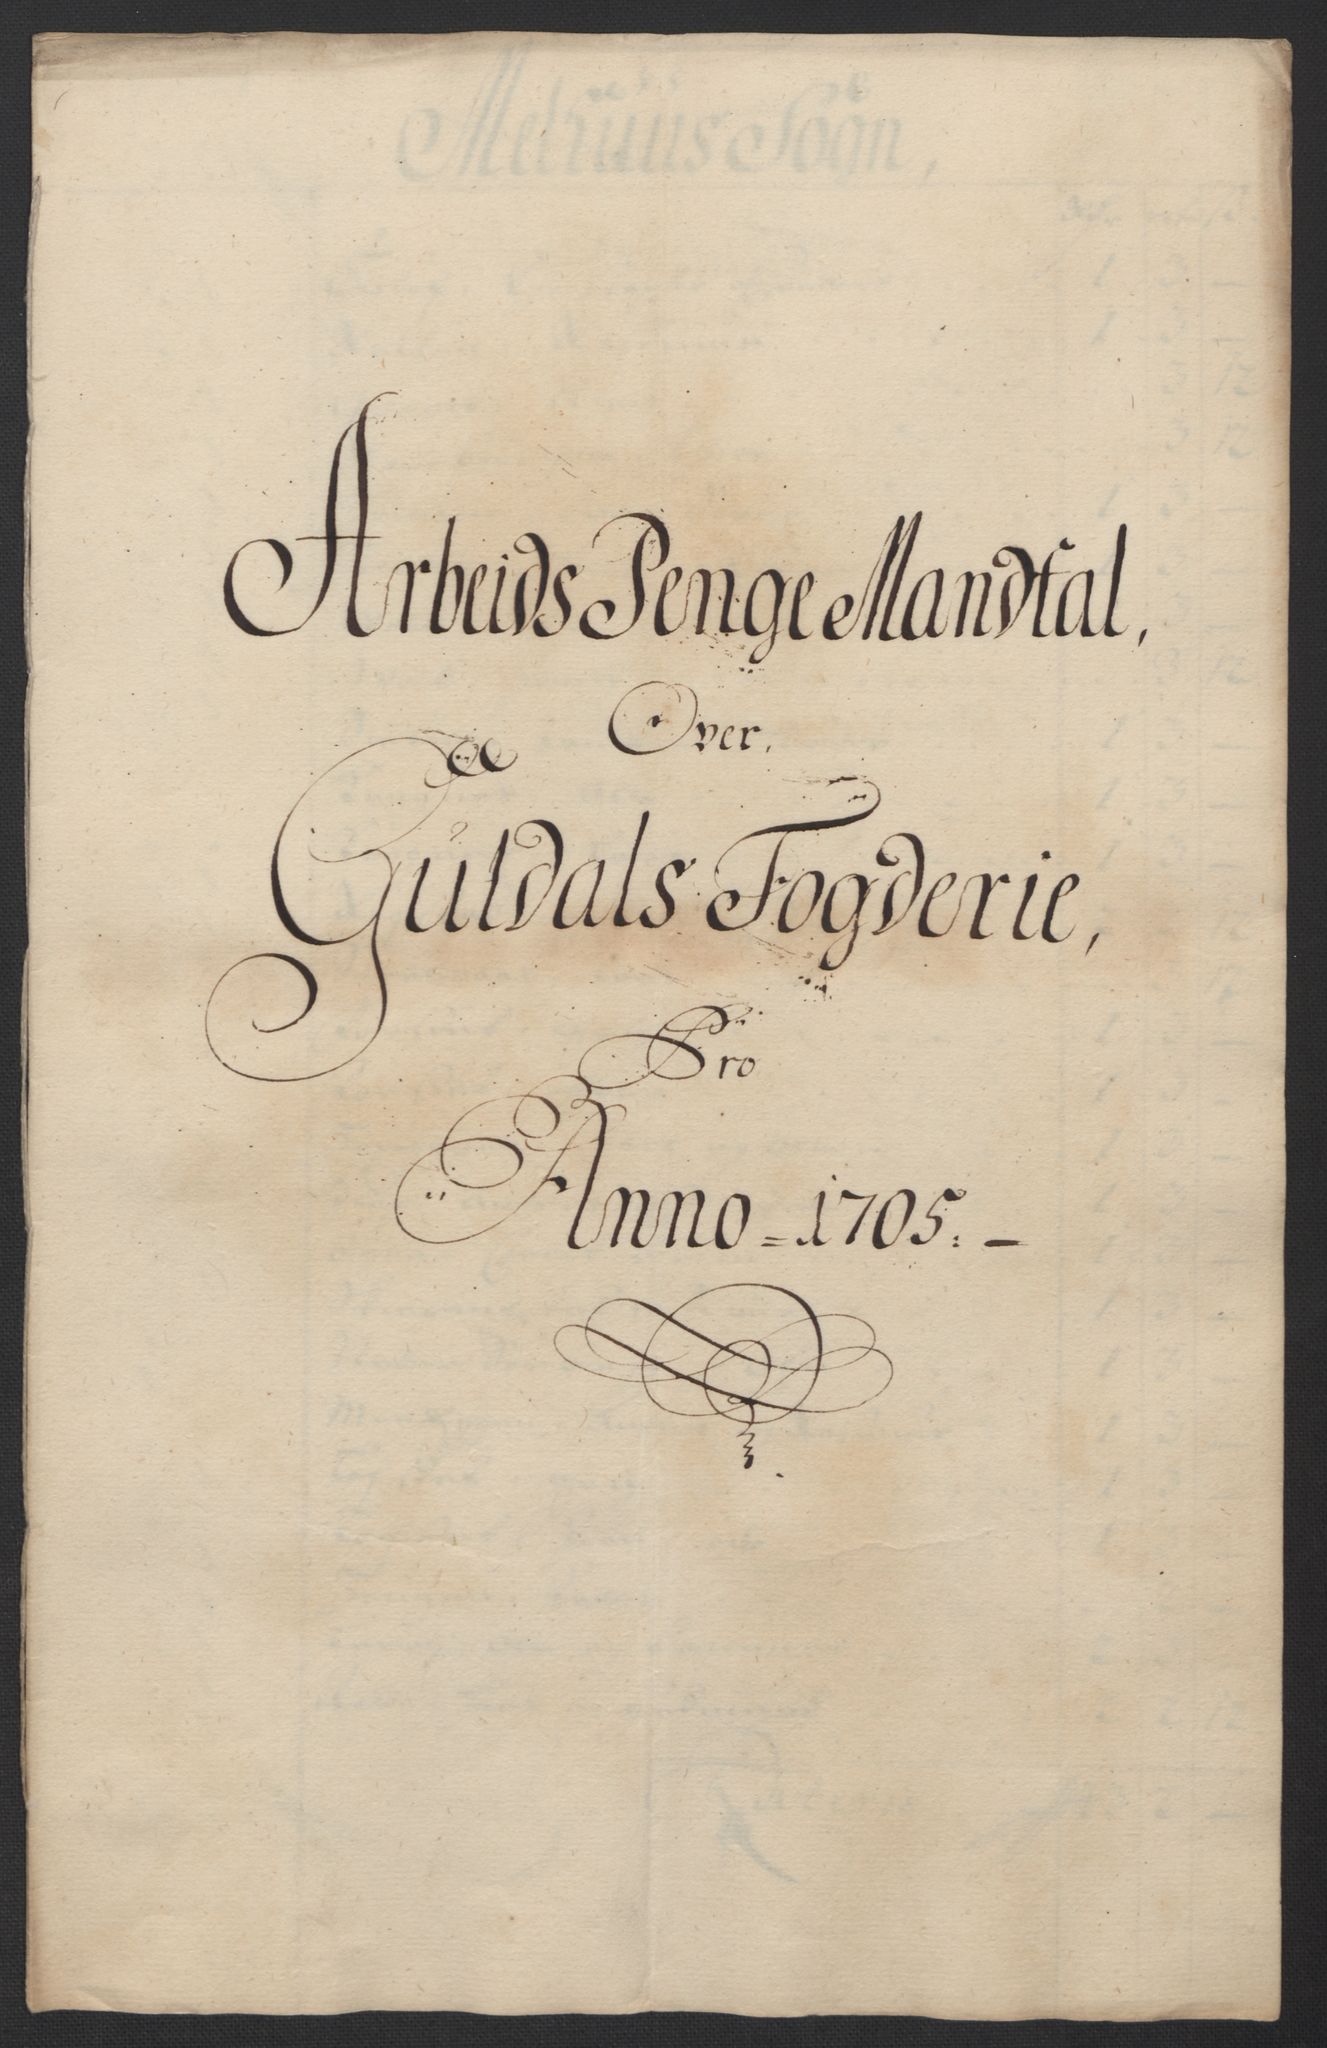 Arbeids Penge Mandtal,
Over,
Guldals Fogderie,
Pro
Anno = 1705. –